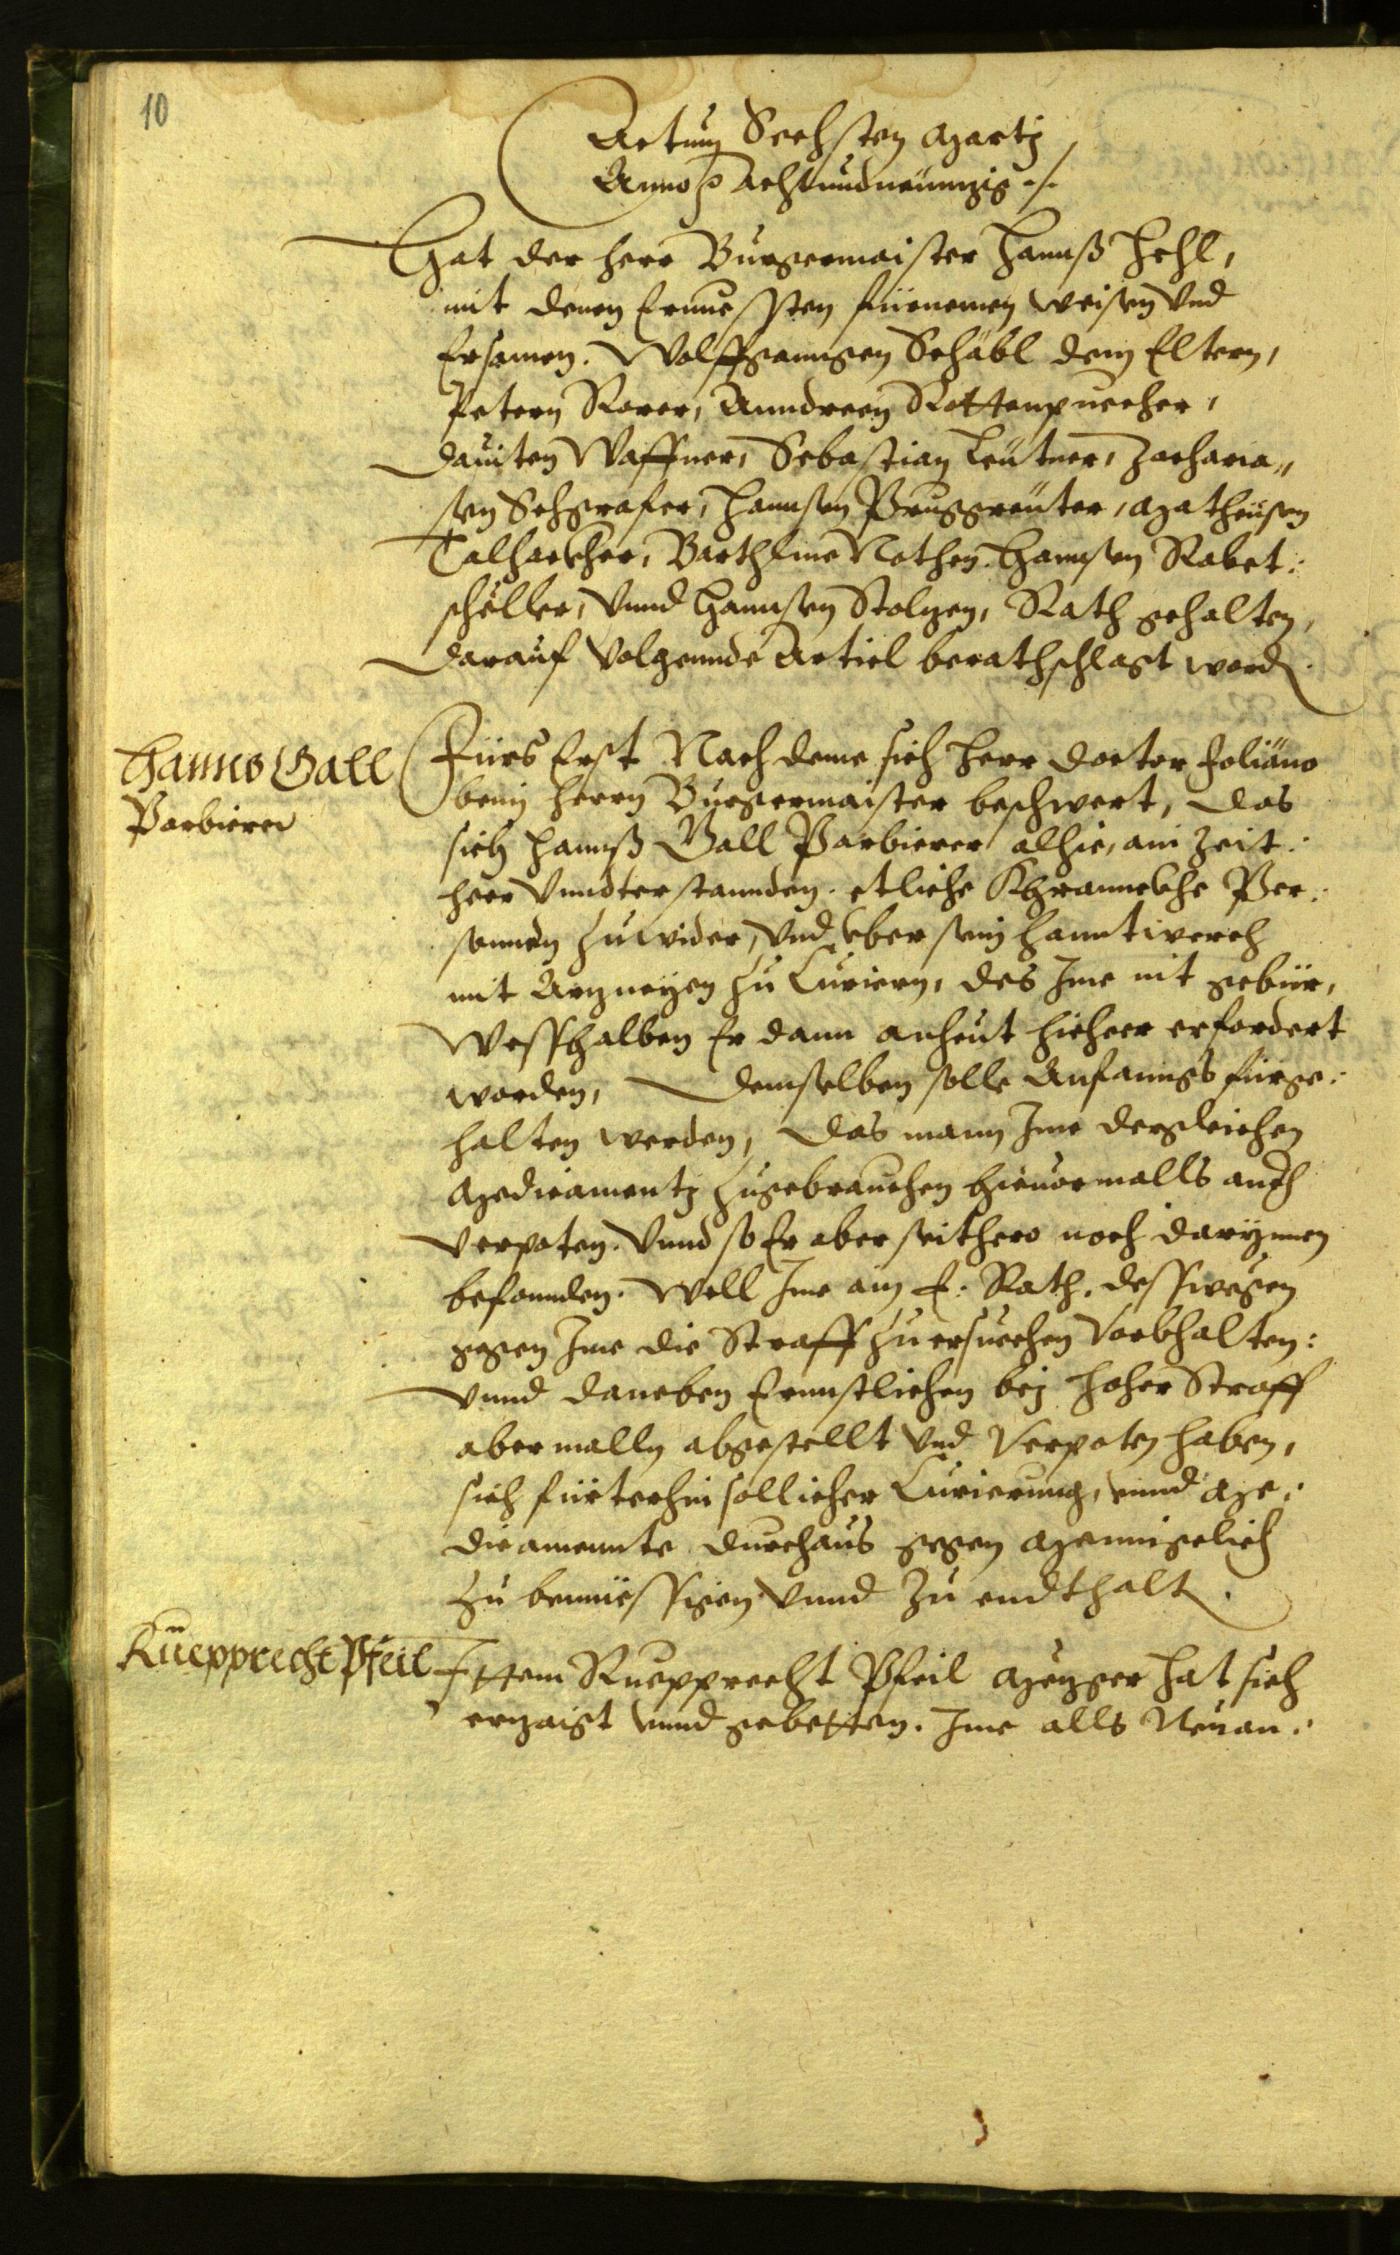 10
Actum Sechsten Martÿ
Anno p Achtundneünzig ./.
Hat der herr Burgermaister Hannß Hehl,
mit denen Ernuessten fürnemen weisen Vnd
Ersamen. Wolffganngen Schäbl dem Eltern,
Petern Rorer, Anndreen Rottenpuecher,
Dauiten Waffner, Sebastian Leütner, Zacharia„
sen Schgrafer, Hannsen Pruggreüter, Matheüsen
Talhackher, Barthlme Nothen. Hannsen Rabet:
scheller, Vnnd Hannsen Stolzen, Rath gehalten,
Darauf Volgennde Articl berathschlagt word.
Hanns Gall
Parbierer
Fürs Erst Nach deme sich herr Doctor Foliäno
beim herrn Burgermaister beschwert, Das
sich Hannß Gall Parbierer alhie, ain Zeit:
heer Vnndterstannden. etliche Khrannckhe Per:
sonnen Zuwider, Vnd vber sein hanntwerch
mit Arzneÿen zu Curiern, des Ime nit gebür,
Wesshalben Er dann anheut hieheer erfordert
worden, Demselben solle Anfanngs fürge:
halten werden, Das mann Ime dergleichen
Medicamentj zugebrauchen hieuormalls auch
Verpoten. Vnnd so Er aber seithero noch darÿnnen
befonnden. Well Ime ain E: Rath. desswegen
gegen Ime die Straff zuersuechen Vorbhalten:
Vnnd daneben Ernnstlichen bej hoher Straff
abermalln abgestellt Vnd Verpoten haben,
sich fürterhin sollicher Curierung, vnnd Me:
dicamennte durchaus gegen Mennigelich
Zu bemüessigen Vnnd Zu endthalt.
Ruepprecht Pfeil
Ittem Ruepprecht Pfeil Mezger hat sich
erzaigt vnnd gebetten. Ime alls Neuan: